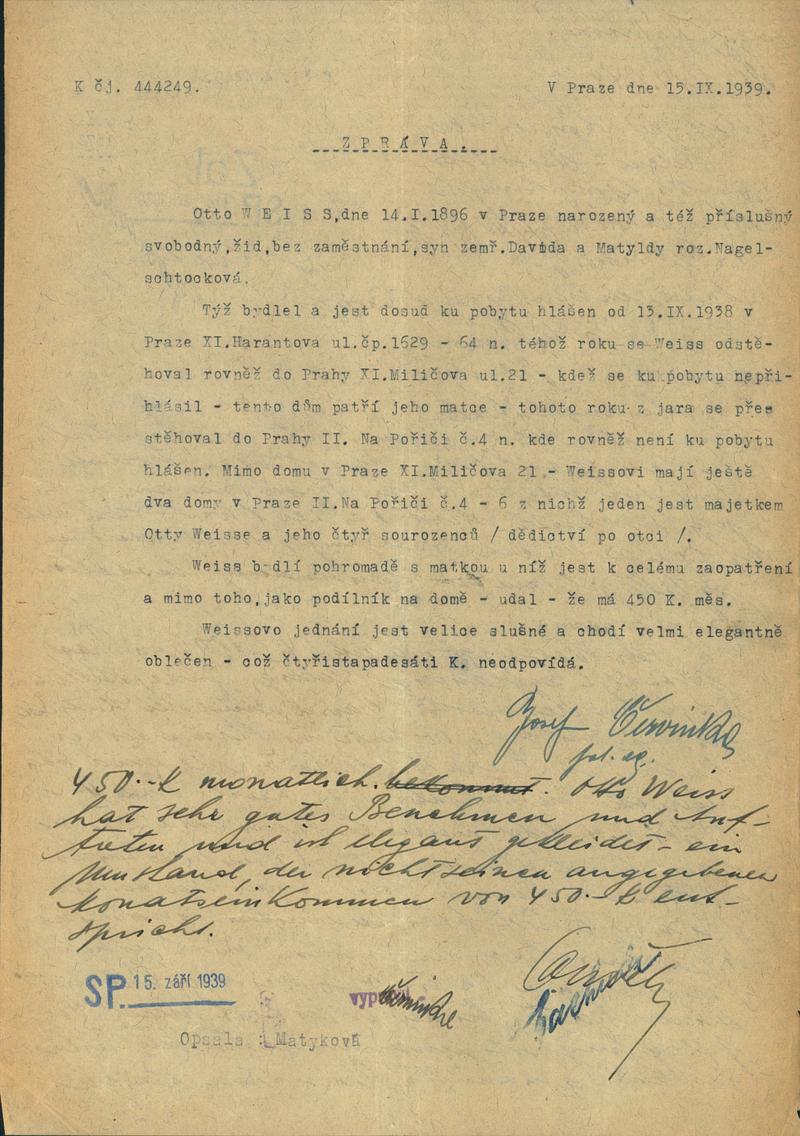 K čj. 444249.
V Praze dne 15.IX.1939.
Z P R Á V A .
Otto W E I S S,dne 14.I.1896 v Praze narozený a též příslušný
svobodný,žid,bez zaměstnání,syn zemř.Davida a Matyldy roz.Nagel-
schtocková.
Týž bydlel a jest dosud ku pobytu hlášen od 13.IX.1938 v
Praze XI.Harantova ul.čp.1629 - 64 n. téhož roku se Weiss odstě-
hoval rovněž do Prahy XI.Miličova ul.21 - kdež se ku pobytu nepři-
hlásil - tento dům patří jeho matce - tohoto roku z jara se přes
stěhoval do Prahy II. Na Poříči č.4 n. kde rovněž není ku pobytu
hlášen. Mimo domu v Praze XI.Miličova 21 - Weissovi mají ještě
dva domy v Praze II.Na Poříči č.4 - 6 z nichž jeden jest majetkem
Otty Weisse a jeho čtyř sourozenců / dědictví po otci /.
Weiss bydlí pohromadě s matkou u níž jest k celému zaopatření
a mimo toho,jako podílník na domě - udal - že má 450 K. měs.
Weissovo jednání jest velice slušné a chodí velmi elegantně
oblečen - což čtyřistapadesáti K. neodpovídá.
Josef Červinka
pol. ag.
450.-K monatlich. bekommt. Otto Weiss
hat sehr gutes Benehmen und Auf-
treten und ist elegant gekleidet - ein
Umstand, der nicht seinen angegebenen
Monatseinkommen von 450.-K ent-
spricht.
SP. 15. září 1939
Červinka
Opsala : Matyková